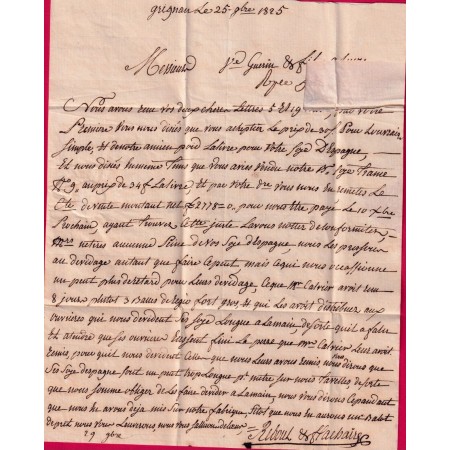 grignan Le 25 9bre 1825
Messieurs Vve Guerin & fils a
Lyon
Nous avons reçu vos deux cheres Lettres 5 & 19 par votre
Premiere Vous nous disiés que vous acceptier Le prix de 30s pour Louvraison
Simple, et de notre amiser poid Lalivre pour votre Soye d'Espagne,
Et nous disiés en même Tems que vous aviés vendue notre Ble Soye france
No 9, au prix de 34f Lalivre, et par votre dre vous nous remetes Le
Cte de vente montant net £2778-0. pour nous être payé Le 10 Xbre
Prochain, ayant trouver Cette juste Lavons noter de Conformiter,
netres aucunne Sinne de Vos Soye d'espagne nous Les presserons
au devidage autant que faire Ce peut mais Ce qui nous occassionne
un petit plus de retard pour Leurs devidage, C'eque Mr Calvier avoit reçu
8 jours plustot 3 Balles de Regio fort gros, et qui Les avoit distribuer aux
ouvrieres qui nous devident Ses Soye Longue a Lamain, desorte qu'il a falu
Et atendre que Ses ouvriere Eussent fini Le peu que Mr Calvier Leur avoit
remis, pour quil nous devident Cette que nous Leurs avons remis nous dirons que
Ses Soye d'espagne sont un peut trop Longue pr metre sur nos Tavelles desorte
que nous somme obliger de Les faire devider a Lamain, nous vous dirons Cepandant
que nous en avons deja mis Sur notre fabrique, Sitot que nous en aurons un Balot
de pret nous vous Lenverrons, nous vous Saluons de Coeur,
29 9bre Reboul &